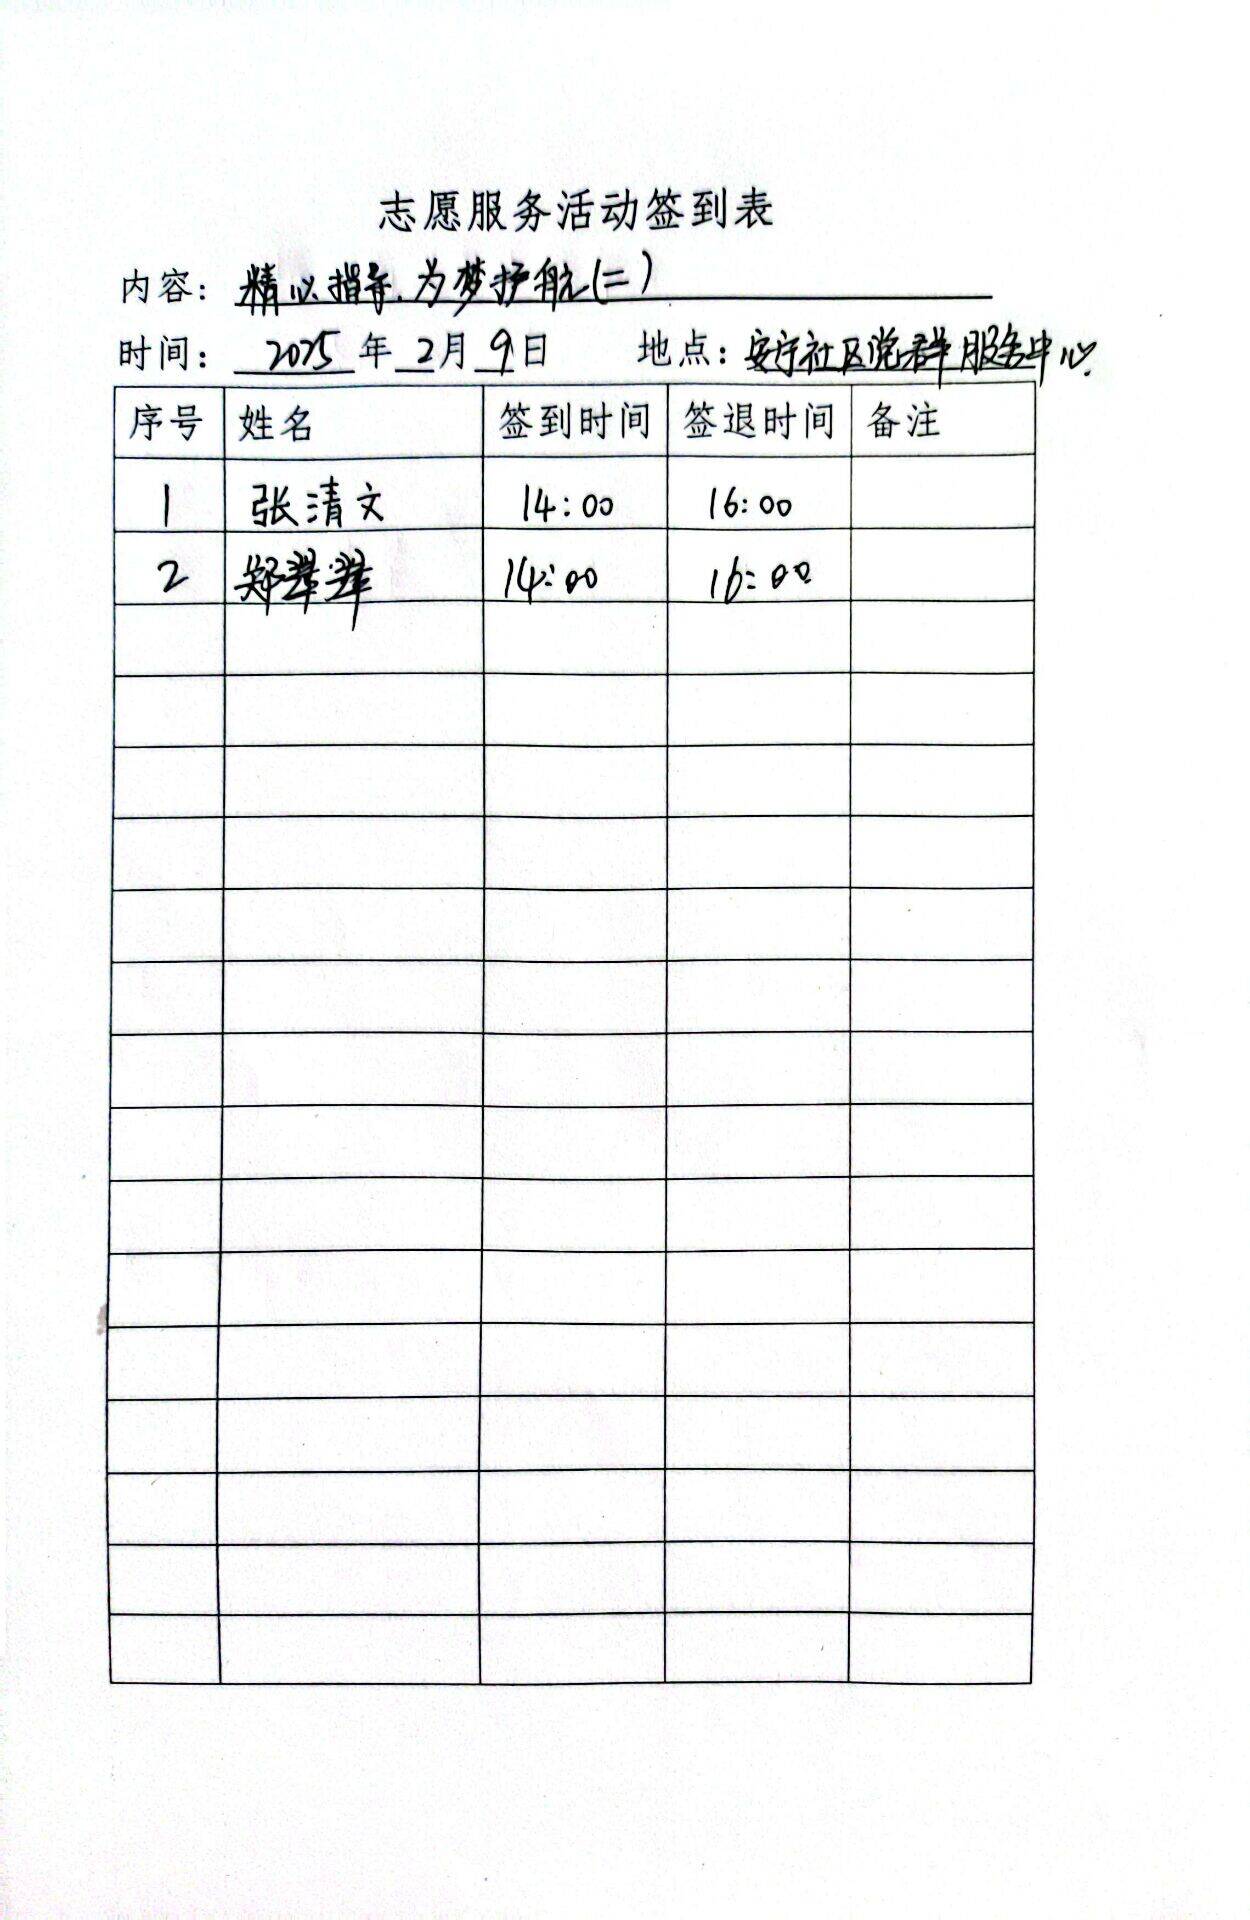 志愿服务活动签到表
内容：精心指导.为梦护航(二)
时间：2025年2月9日 地点：安宁社区党群服务中心.
序号 姓名 签到时间 签退时间 备注
1 张清文 14:00 16:00
2 郑翠翠 14:00 16:00